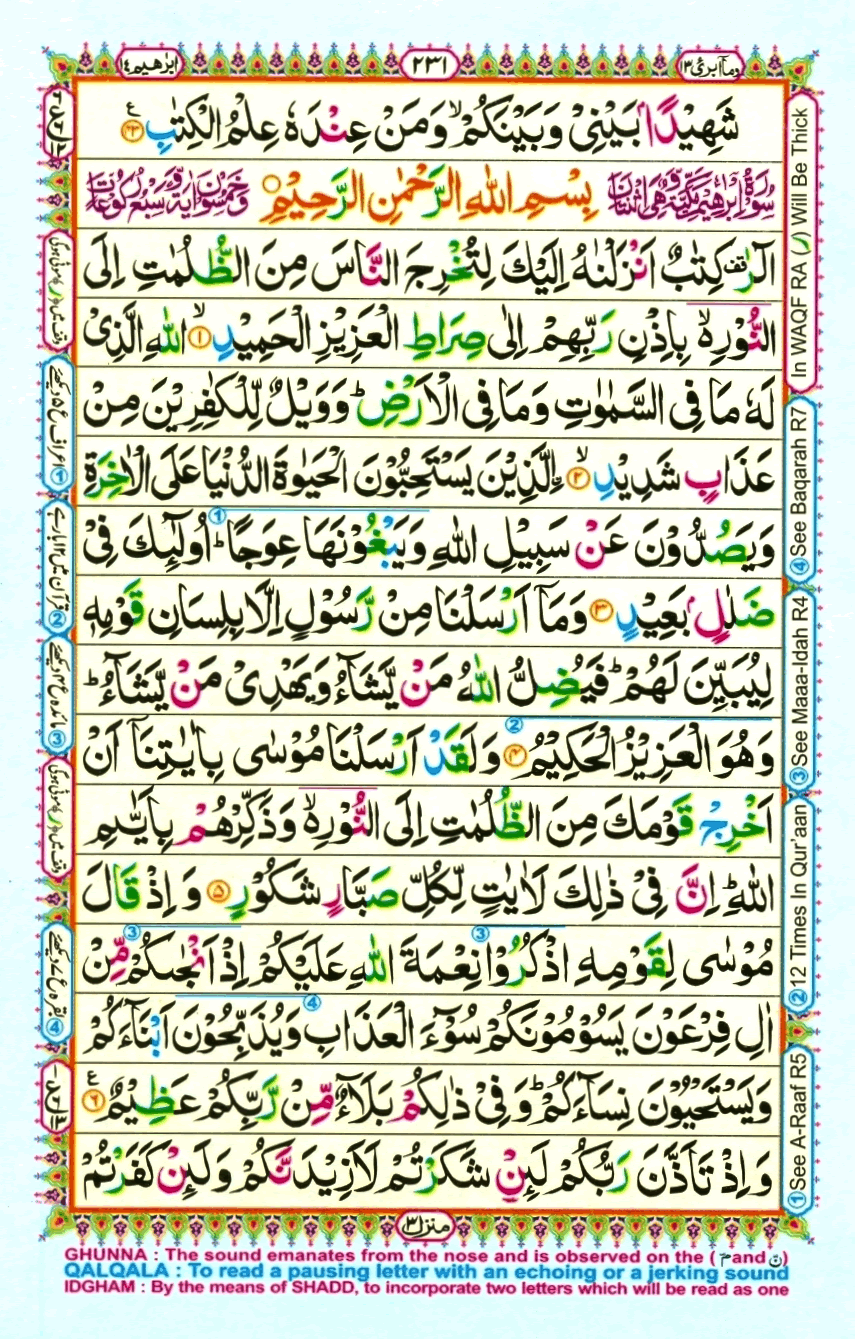 ابرٰهیم ١٤
٢٣١
ومآ ابرئ ١٣
شَهِيْدًۢا بَيْنِيْ وَبَيْنَكُمْ ۙ وَمَنْ عِنْدَهٗ عِلْمُ الْكِتٰبِ ۞٤٣ ع
سُوْرَةُ اِبْرٰهِيْمَ مَكِّيَّةٌ وَّهِيَ اثْنَتَانِ بِسْمِ اللّٰهِ الرَّحْمٰنِ الرَّحِيْمِ وَخَمْسُوْنَ اٰيَةً وَّسَبْعُ رُكُوْعَاتٍ
الٓرٰ ۫ كِتٰبٌ اَنْزَلْنٰهُ اِلَيْكَ لِتُخْرِجَ النَّاسَ مِنَ الظُّلُمٰتِ اِلَى
النُّوْرِ ۙ۬ بِاِذْنِ رَبِّهِمْ اِلٰى صِرَاطِ الْعَزِيْزِ الْحَمِيْدِ ۙ۝١ اللّٰهِ الَّذِيْ
لَهٗ مَا فِي السَّمٰوٰتِ وَمَا فِي الْاَرْضِ ؕ وَوَيْلٌ لِّلْكٰفِرِيْنَ مِنْ
عَذَابٍ شَدِيْدِ ۙ۝٢ اِۨلَّذِيْنَ يَسْتَحِبُّوْنَ الْحَيٰوةَ الدُّنْيَا عَلَى الْاٰخِرَةِ
وَيَصُدُّوْنَ عَنْ سَبِيْلِ اللّٰهِ وَيَبْغُوْنَهَا عِوَجًا ؕ اُولٰٓئِكَ فِيْ
ضَلٰلٍۭ بَعِيْدٍ ۝٣ وَمَآ اَرْسَلْنَا مِنْ رَّسُوْلٍ اِلَّا بِلِسَانِ قَوْمِهٖ
لِيُبَيِّنَ لَهُمْ ؕ فَيُضِلُّ اللّٰهُ مَنْ يَّشَآءُ وَيَهْدِيْ مَنْ يَّشَآءُ ؕ
وَهُوَ الْعَزِيْزُ الْحَكِيْمُ ۝٤ وَلَقَدْ اَرْسَلْنَا مُوْسٰى بِاٰيٰتِنَآ اَنْ
اَخْرِجْ قَوْمَكَ مِنَ الظُّلُمٰتِ اِلَى النُّوْرِ ۙ۬ وَذَكِّرْهُمْ بِاَيّٰىمِ
اللّٰهِ ؕ اِنَّ فِيْ ذٰلِكَ لَاٰيٰتٍ لِّكُلِّ صَبَّارٍ شَكُوْرٍ ۝٥ وَاِذْ قَالَ
مُوْسٰى لِقَوْمِهِ اذْكُرُوْا نِعْمَةَ اللّٰهِ عَلَيْكُمْ اِذْ اَنْجٰىكُمْ مِّنْ
اٰلِ فِرْعَوْنَ يَسُوْمُوْنَكُمْ سُوْٓءَ الْعَذَابِ وَيُذَبِّحُوْنَ اَبْنَآءَكُمْ
وَيَسْتَحْيُوْنَ نِسَآءَكُمْ ؕ وَفِيْ ذٰلِكُمْ بَلَآءٌ مِّنْ رَّبِّكُمْ عَظِيْمٌ ۝٦ ع
وَاِذْ تَاَذَّنَ رَبُّكُمْ لَئِنْ شَكَرْتُمْ لَاَزِيْدَنَّكُمْ وَلَئِنْ كَفَرْتُمْ
منزل ٣
In WAQF RA (ر) Will Be Thick
④ See Baqarah R7
③ See Maaa-Idah R4
② 12 Times In Qur'aan
① See A-Raaf R5
① اعراف ع ٥ دیکھئے
② قرآن میں ١٢ بار ہے
③ مائدہ ع ٤ دیکھئے
④ بقرہ ع ٧ دیکھئے
GHUNNA : The sound emanates from the nose and is observed on the ( مّ and نّ )
QALQALA : To read a pausing letter with an echoing or a jerking sound
IDGHAM : By the means of SHADD, to incorporate two letters which will be read as one